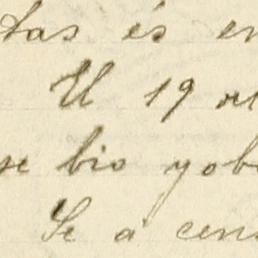 tas és en
El 19 
se bio yob
Se a cen